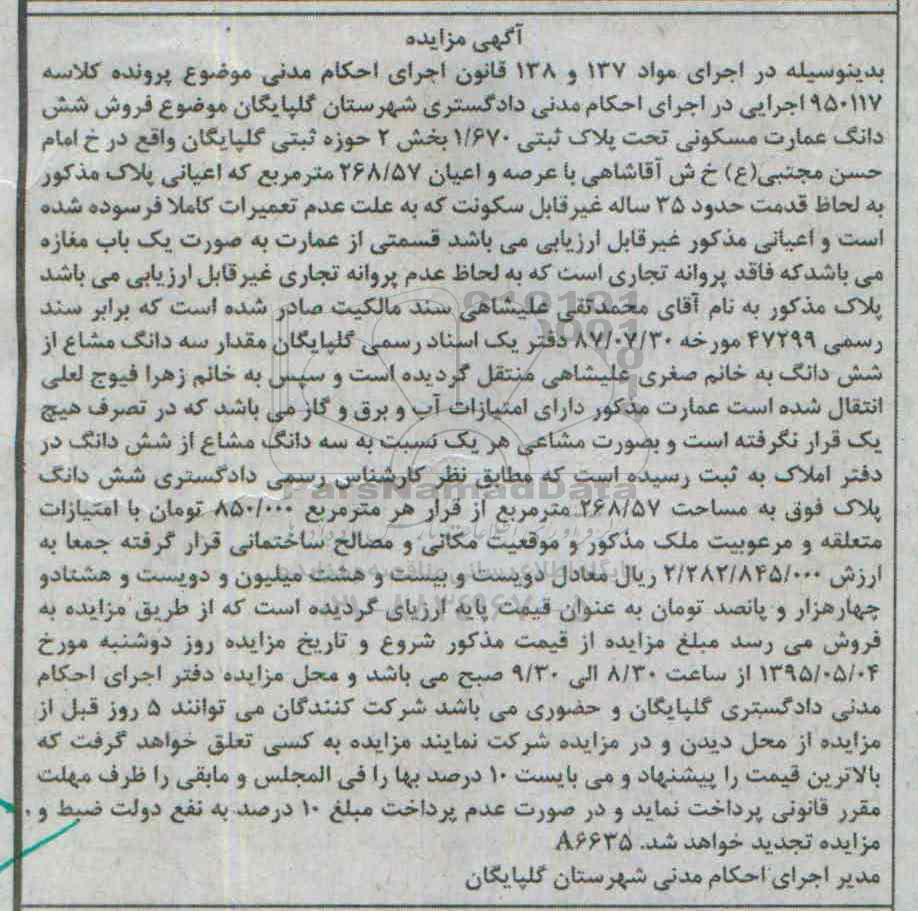 آگهی مزایده
بدینوسیله در اجرای مواد ۱۳۷ و ۱۳۸ قانون اجرای احکام مدنی موضوع پرونده کلاسه
۹۵۰۱۱۷ اجرایی در اجرای احکام مدنی دادگستری شهرستان گلپایگان موضوع فروش شش
دانگ عمارت مسکونی تحت پلاک ثبتی ۱/۶۷۰ بخش ۲ حوزه ثبتی گلپایگان واقع در خ امام
حسن مجتبی(ع) خ ش آقاشاهی با عرصه و اعیان ۲۶۸/۵۷ مترمربع که اعیانی پلاک مذکور
به لحاظ قدمت حدود ۳۵ ساله غیرقابل سکونت که به علت عدم تعمیرات کاملا فرسوده شده
است و اعیانی مذکور غیرقابل ارزیابی می باشد قسمتی از عمارت به صورت یک باب مغازه
می باشدکه فاقد پروانه تجاری است که به لحاظ عدم پروانه تجاری غیرقابل ارزیابی می باشد
پلاک مذکور به نام آقای محمدتقی علیشاهی سند مالکیت صادر شده است که برابر سند
رسمی ۴۷۲۹۹ مورخه ۸۷/۰۷/۳۰ دفتر یک اسناد رسمی گلپایگان مقدار سه دانگ مشاع از
شش دانگ به خانم صغری علیشاهی منتقل گردیده است و سپس به خانم زهرا فیوج لعلی
انتقال شده است عمارت مذکور دارای امتیازات آب و برق و گاز می باشد که در تصرف هیچ
یک قرار نگرفته است و بصورت مشاعی هر یک نسبت به سه دانگ مشاع از شش دانگ در
دفتر املاک به ثبت رسیده است که مطابق نظر کارشناس رسمی دادگستری شش دانگ
پلاک فوق به مساحت ۲۶۸/۵۷ مترمربع از قرار هر مترمربع ۸۵۰/۰۰۰ تومان با امتیازات
متعلقه و مرعوبیت ملک مذکور و موقعیت مکانی و مصالح ساختمانی قرار گرفته جمعا به
ارزش ۲/۲۸۲/۸۴۵/۰۰۰ ریال معادل دویست و بیست و هشت میلیون و دویست و هشتادو
چهارهزار و پانصد تومان به عنوان قیمت پایه ارزیای گردیده است که از طریق مزایده به
فروش می رسد مبلغ مزایده از قیمت مذکور شروع و تاریخ مزایده روز دوشنبه مورخ
۱۳۹۵/۰۵/۰۴ از ساعت ۸/۳۰ الی ۹/۳۰ صبح می باشد و محل مزایده دفتر اجرای احکام
مدنی دادگستری گلپایگان و حضوری می باشد شرکت کنندگان می توانند ۵ روز قبل از
مزایده از محل دیدن و در مزایده شرکت نمایند مزایده به کسی تعلق خواهد گرفت که
بالاترین قیمت را پیشنهاد و می بایست ۱۰ درصد بها را فی المجلس و مابقی را ظرف مهلت
مقرر قانونی پرداخت نماید و در صورت عدم پرداخت مبلغ ۱۰ درصد به نفع دولت ضبط و
مزایده تجدید خواهد شد. ۸۶۶۳۵
مدیر اجرای احکام مدنی شهرستان گلپایگان
ParsNamadData